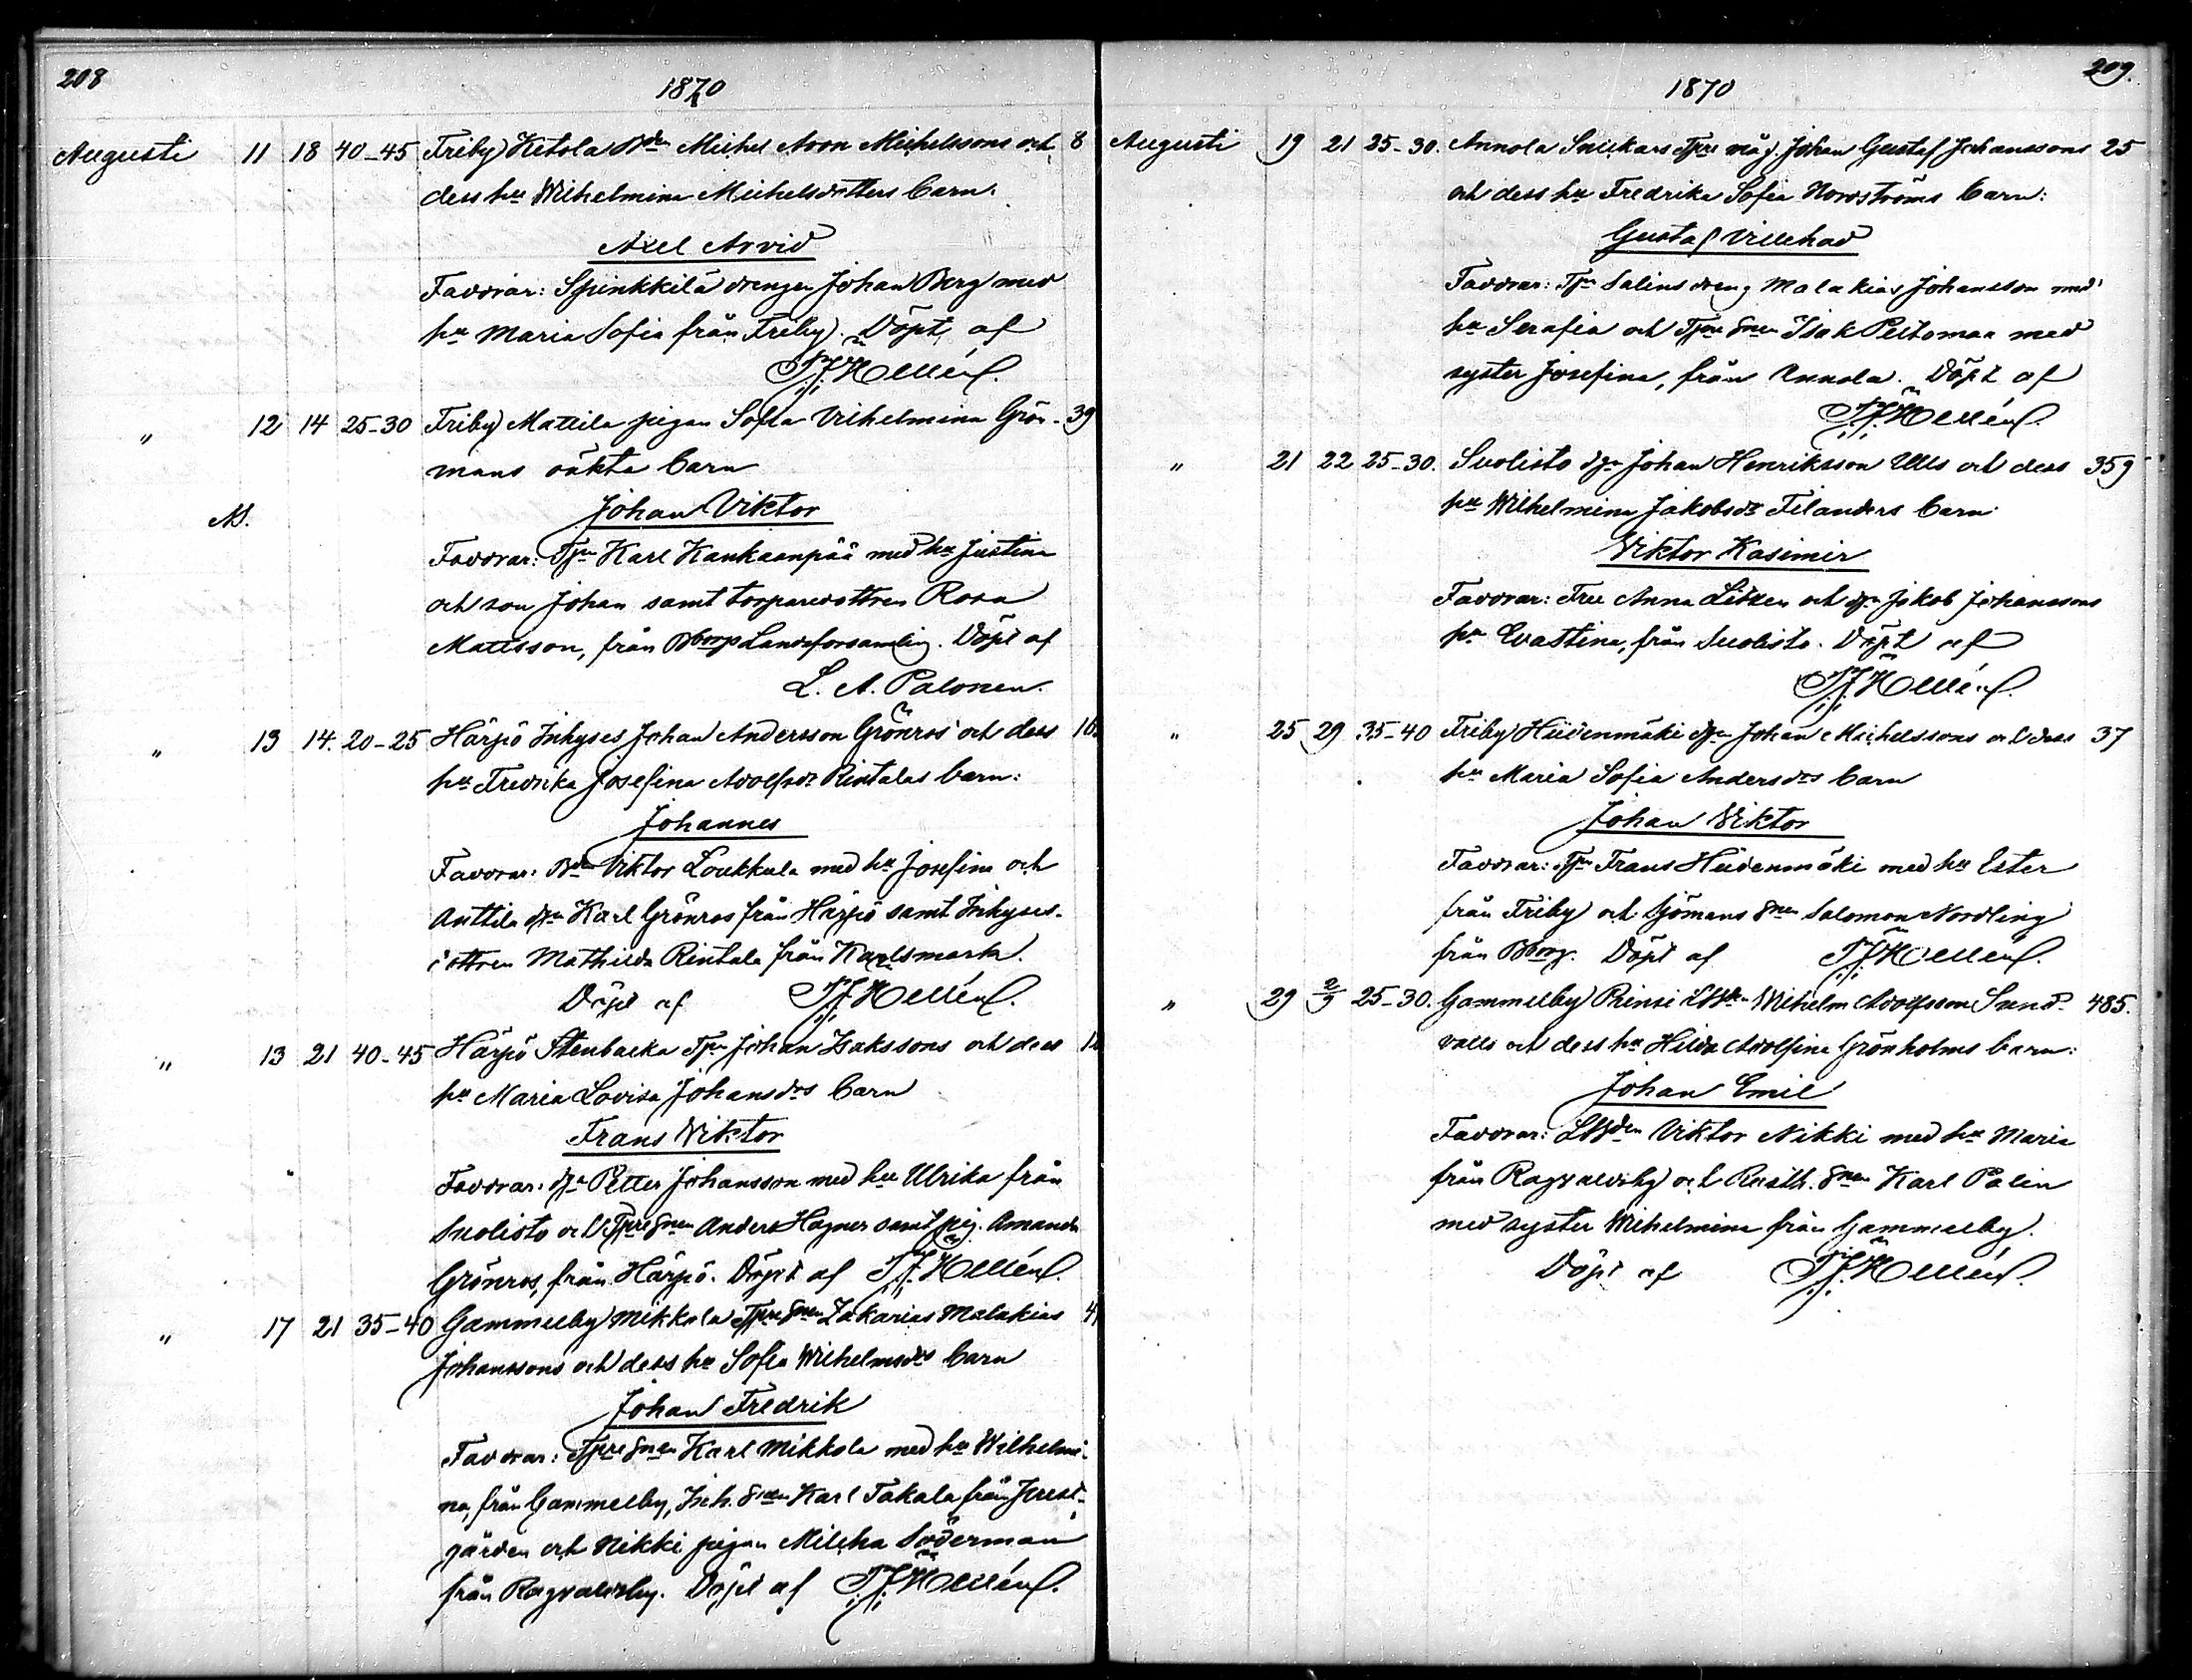 208
1870
Augusti 11 18 40-45 Friby Ketola Bdn Michel Aron Michelssons och 8
dess hu Wilhelmina Michelsdotters barn.
Axel Arvid
Faddrar: drengen Johan Berg med
hu Maria Sofia från Friby. Döpt af
TJHellén.
" 12 14 25-30 Friby Mattila pigan Sofia Vilhelmina Grön- 39
mans oäkta barn
Johan Viktor
Faddrar: Karl Kankaanpää med hu Justina
och son Johan samt torparedottren Rosa
Mattsson, från Bborgs Landsforsamling. Döpt af
L. A. Palonen.
" 13 14. 20-25 Härpö Inhyses Johan Andersson Grönros och dess
hu Fredrika Josefina Adolfsdr Rintalas barn:
Johannes
Faddrar: Bdn Viktor Loukkula med hu Josefina och
Anttila dgn Karl Grönros från Härpö samt Inhyses-
dottren Mathilda Rintala från Karlsmark.
Döpt af TJHellén.
" 13 21 40-45 Härpö Stenbacka Tpn Johan Isakssons och dess
hu Maria Lovisa Johansdrs barn
Frans Wiktor
Faddrar: dgn Petter Johansson med hu Ulrika från
Suolisto och Tpresnen Anders Hagner samt pig. Amanda
Grönros, från Härpö. Döpt af TJHellén.
" 17 21 35-40 Gammelby Mikkola Tpresnen Zakarias Malakias
Johanssons och dess hu Sofia Wilhelmsdrs barn
Johan Fredrik
Faddrar: Tpresnen Karl Mikkola med hu Wilhelmi-
na, från Gammelby, Inh. snen Karl Takala från
gården och Nikki pigan Milcha Söderman
från Ragvaldsby. Döpt af TJHellén.
209.
1870
Augusti 19 21 25-30. Annola Snickars Tpre måg. Johan Gustaf Johanssons 25
och dess hu Fredrika Sofia Nordströms barn:
Gustaf Villehad
Faddrar: Tpn Salins dreng Malakias Johansson med
hu Serafia och Tpre snen Isak Peltomaa med
syster Josefina, från Annola. Döpt af
TJHellén.
" 21 22 25-30. Suolisto dgn Johan Henriksson Ulls och dess 359
hu Wilhelmina Jakobsdr Filanders barn
Wiktor Kasimir
Faddrar: Anna Litzen och dgn Jakob Johanssons
hu Evastina, från Suolisto. Döpt af
TJHellén.
" 25 29 35-40 Friby Hiidenmäki dgn Johan Michelssons och dess 37
hu Maria Sofia Andersdrs barn
Johan Wiktor
Faddrar: Tpn Frans Hiidenmäki med hu Ester
från Friby och Sjömans snen Salomon Nordling
från Bborg. Döpt af TJHellén.
" 29 2/9 25-30. Gammelby Prinsi Wilhelm Adolfsson Sund- 485.
valls och dess hu Hilda Adolfina Grönholms barn:
Johan Emil
Faddrar: Viktor Nikki med hu Maria
från Ragvaldsby och Rusth. snen Karl Palin
med syster Wilhelmina från Gammelby.
Döpt af TJHellén.